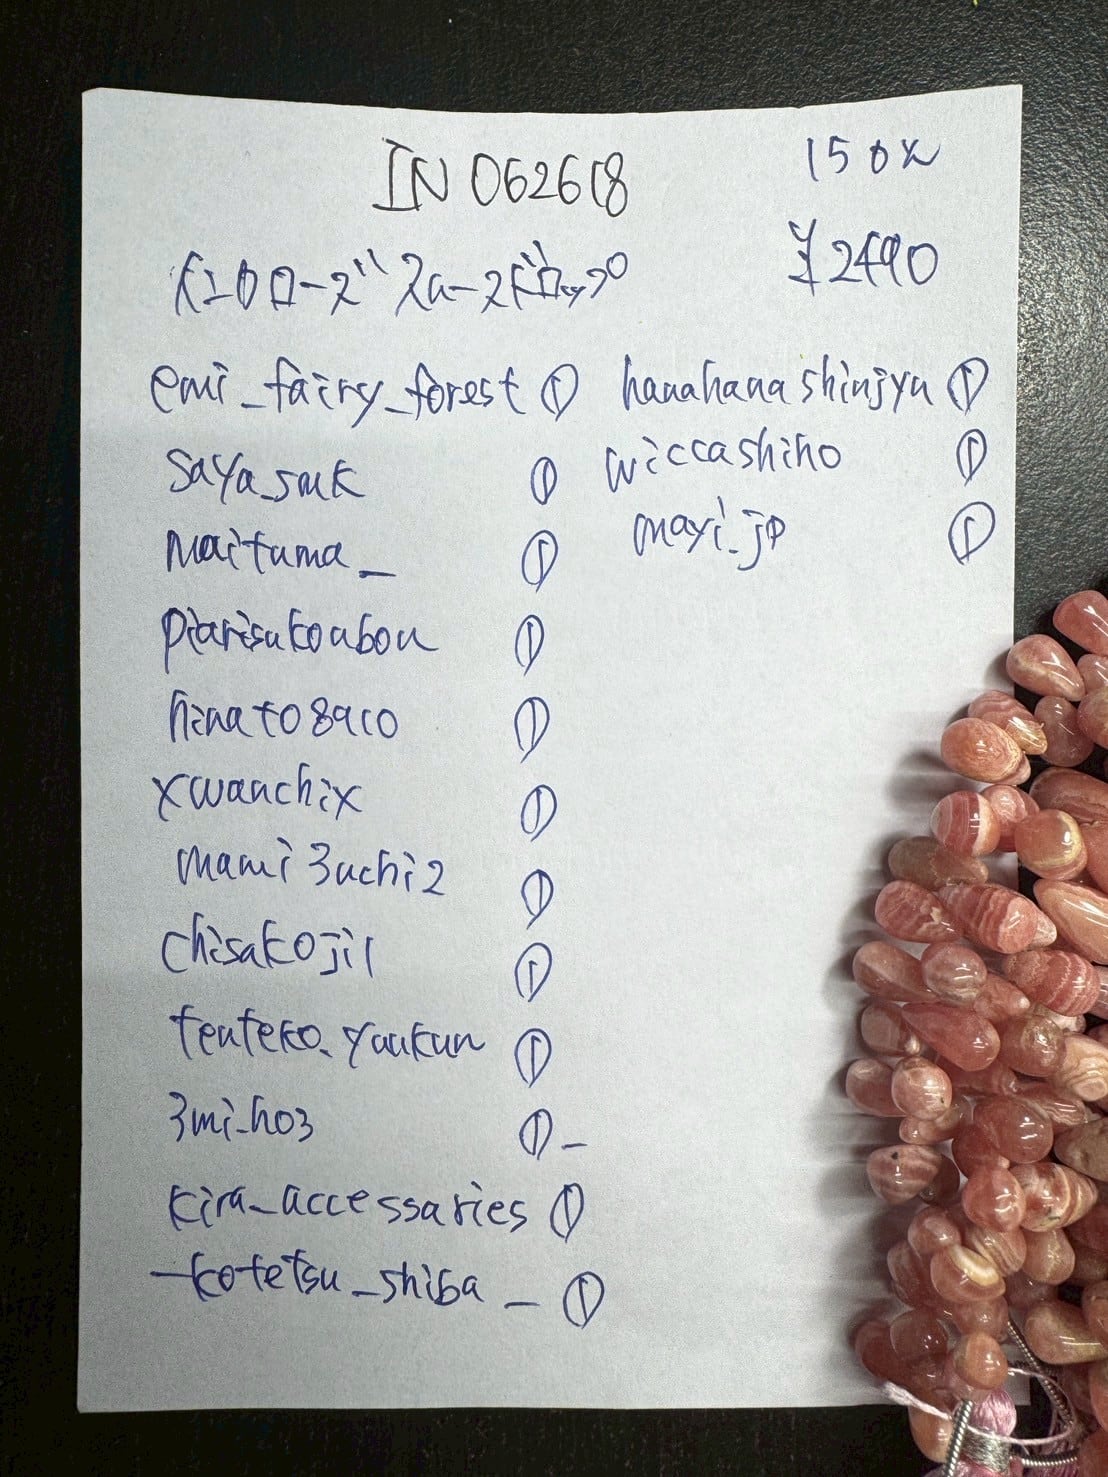 IN062618
150x
インカローズスムースドロップ
¥2490
emi_fairy_forest ①
saya_smk ①
maituma_ ①
piarisukoabou ①
hinato8aco ①
xwanchix ①
mami3uchi2 ①
chisakoji1 ①
tenteko.yuukun ①
3mi_ho3 ①_
kira_accessaries ①
_kotetsu_shiba_ ①
hanahanashinjyu ①
wiccashiho ①
mayi_jp ①